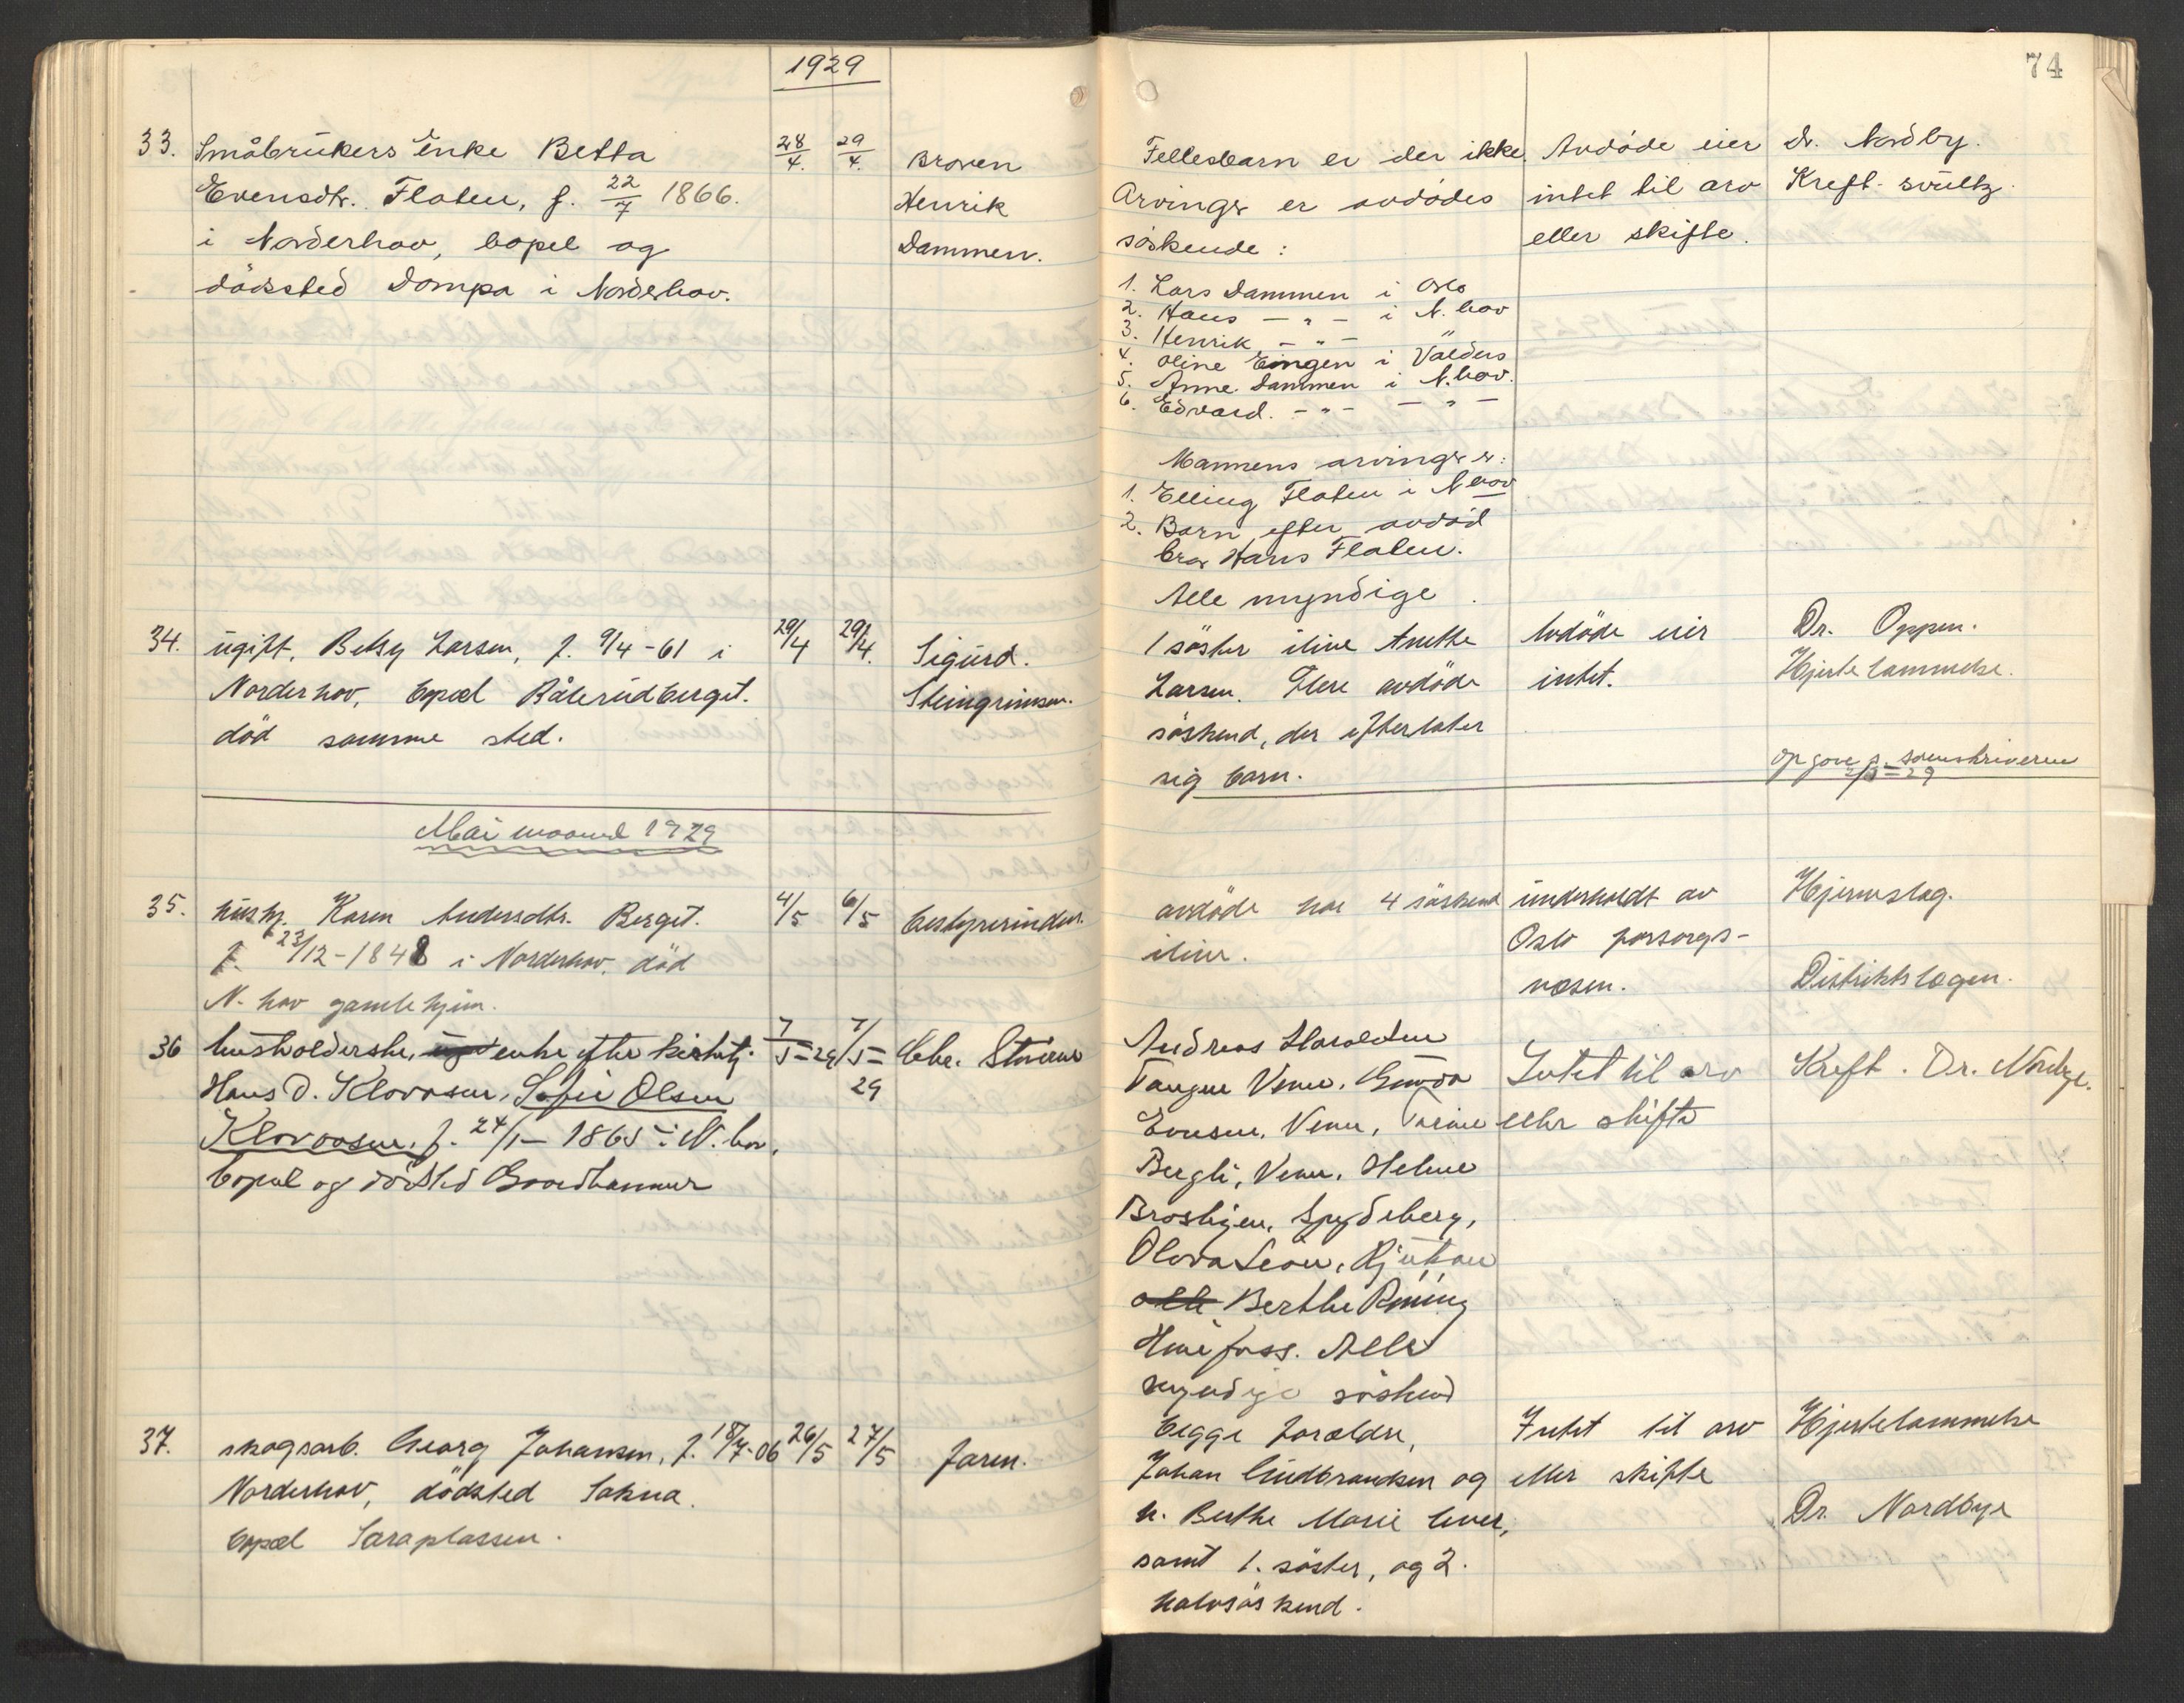 1929
74
33. Småbrukers Enke Betta
Evensdtr. Flaten, f. 22/7 1866.
i Norderhov, bopel og
dödssted Dompa i Norderhov.
28/4. 29/4.
Broren
Henrik
Dammen.
Fellesbarn er der ikke.
Arvinger er avdödes
söskende:
1. Lars Dammen i Oslo
2. Hans - " - i N. hov
3. Henrik - " -
4. Oline Eingen i Valders
5. Anne Dammen i N. hov.
6. Edvard. - " - - " -
Mannens arvinger er:
1. Elling Flaten i N hov
2. Barn efter avdöd
bror Hans Flaten.
Alle myndige.
Avdöde eier
intet til arv
eller skifte.
Dr. Nordby.
Kreft-
34. ugift, Betsy Larsen, f. 9/4-61 i
Norderhov, bopæl Bålerudberget.
död samme sted.
29/4 29/4.
Sigurd.
Steingrimsen.
1 söster ilive Anette
Larsen. Flere avdöde
söskend, der efterlater
sig barn.
Avdöde eier
intet.
Dr. Oppen.
Hjertelammelse.
Opgave s. sorenskriveren
Mai maaned 1929
35. hush. Karen Andersdtr. Berget.
f. 23/12-1848 i Norderhov, död
N. hov gamlehjem.
4/5 6/5
bestyrerinden.
avdöde har 4 söskend
ilive.
underholdt av
Oslo forsorgs-
væsen.
Hjerneslag.
Distriktslægen.
36 husholderske, enke efter
Hans D. Klovosen, Sofie Olsen
Klovosen, f. 24/1-1865 i N. hov,
bopæl og dödsted
7/5-29 7/5-29
Chr.
Andreas Haraldsen
Tangen Venn, Gunda
Evensen, Venn,
Bergli, Venn, Helene
Broshjen, Spydeberg,
Olova Leon, Rjukan
alle Berthe
Hönefoss. Alle
myndige söskend
Intet til arv
eller skifte
Kreft. Dr. Nordbye.
37. skogsarb. Georg Johansen, f. 18/7-06
Norderhov, dödsted Sokna.
bopæl Saraplassen.
26/5 27/5
faren.
begge forældre,
Johan Gudbrandsen og
h. Berthe Marie lever,
samt 1. söster, og 2.
halvsöskend.
Intet til arv
eller skifte
Hjertelammelse
Dr. Nordbye